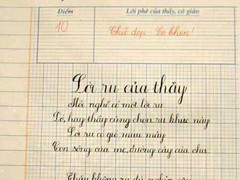 Điểm
Lời phê của thầy, cô giáo
10
Chữ đẹp. Có khen!
Lời ru của thầy
Mỗi nghề có một lời ru
Dở, hay thầy cũng chọn ru khúc này
Lời ru cô giữ màu mây
Con sông của mẹ, đường cày của cha.